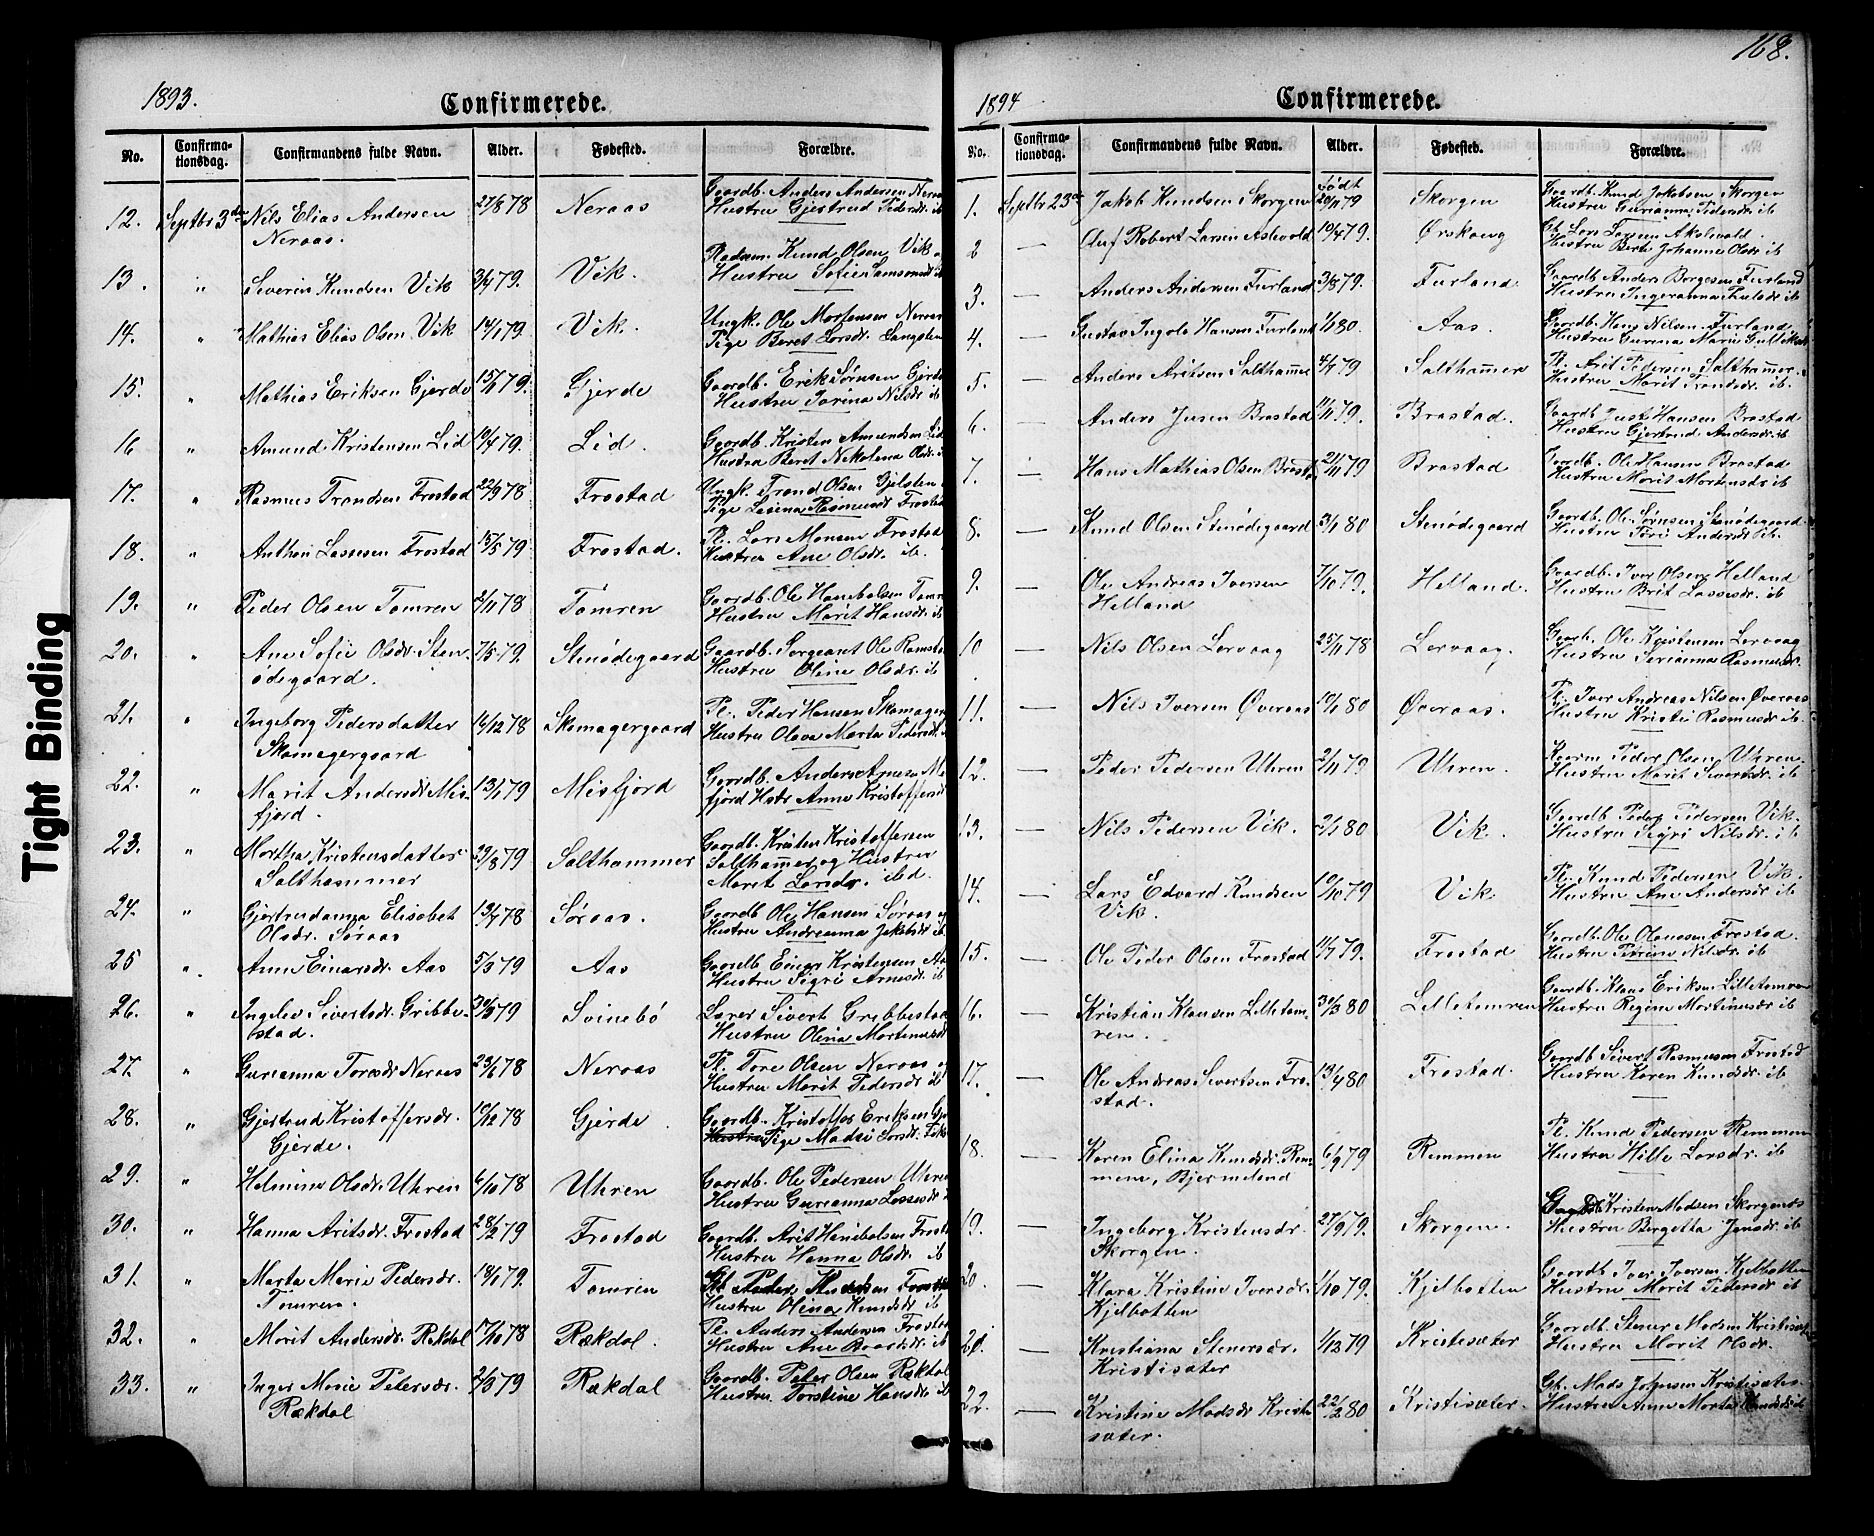 Tight Binding
1893.
Confirmerede.
No. Confirma-tionsdag. Confirmandens fulde Navn. Alder. Fødested. Forældre.
12. Septbr 3die Nils Elias Andersen Neraas. 27/8 78 Neraas Gaardb. Anders Andersen Neraas Hustru Gjertrud Pedersdr. ib
13. " Severin Knudsen Vik 3/4 79. Vik. Knud Olsen Vik Hustru Sofie Samsonsdr ib
14. " Mathias Elias Olsen Vik 14/1 79. Vik. Ungk. Ole Mortensen Neraas Pige Beret Larsdr. Langsten
15. " Mathias Eriksen Gjerde 15/1 79. Gjerde Gaardb. Erik Sørnsen Gjerde Hustru Torina Nilsdr ib
16 " Amund Kristensen Lid 10/4 79. Lid. Gaardb. Kristen Amundsen Lid Hustru Beret Nikolena Olsdr. ib
17. " Rasmus Trondsen Frostad 22/9 78 Frostad Ungk. Trond Olsen Gjelsten Pige Lasina Rasmusdr Frostad
18. " Anthon Larsen Frostad 15/5 79 Frostad. Pl. Lars Monsen Frostad Hustru Ane Olsdr. ib.
19. " Peder Olsen Tomren 2/11 78 Tomren Gaardb. Ole Hanibalsen Tomren Hustru Marit Hansdr. ib
20. " Ane Sofie Olsdr. Sten-ødegaard. 7/5 79. Stenødegaard Gaardb. Sergeant Ole Ramstad Hustru Oline Olsdr. ib
21. " Ingeborg Pedersdatter Skomagergaard 16/12 78 Skomagergaard Pl. Peder Hansen Skomager Hustru Olava Marta Pedersdr.
22. " Marit Andersdr. Mis-fjord. 13/1 79 Misfjord Gaardb. Anders Arnesen Mis fjord Hstr Anne Kristoffersdr
23. " Martha Kristensdatter Salthammer 29/8 79 Salthammer Gaardb. Kristen Kristoffersen Salthammer og Hustru Marit Larsdr. ibd.
24. " Gjertrudanna Elisabet Olsdr. Søraas 13/7 78 Søraas. Gaardb Ole Hansen Søraas og Hustru Andreanna Jakobsdr ib
25 " Anne Einarsdr. Aas 5/3 79 Aas Gaardb Einar Kristensen Aas Hustru Sigri Arnesdr ib
26. " Ingelev Sivertsdr. Gribbe-stad. 30/3 79 Svinebø Lærer Sivert Gribbestad Hustru Olina Mortensdr
27. " Gurianna Toresdr. Neraas 23/6 78 Neraas Pl. Tore Olsen Neraas og Hustru Marit Pedersdr ib
28. " Gjertrud Kristoffersdr. Gjerde. 10/12 78 Gjerde Gaardb. Kristoffer Eriksen Gj Hustru Pige Madli Larsdr.
29. " Helmine Olsdr. Uhren 6/10 78 Uhren Gaardb. Ole Pedersen Uhren Hustru Gurianna Lassesdr
30. " Hanna Aritsdr. Frostad 28/2 79 Frostad Gaardb. Arit Hanibalsen Frostad Hustru Hanna Olsdr. ib
31. " Marta Marie Pedersdr. Tomren. 18/1 79. Tomren Peder Hustru Olina Knudsdr ib
32. " Marit Andersdr. Rækdal 17/10 78 Rækdal. Pl. Anders Andersen Frostad Hustru Ane Baardsdr. ib
33. " Inger Marie Petersdr. Rækdal 2/3 79 Rækdal Gaardb. Peter Olsen Rækdal Hustru Torstine Hansdr. ib
168.
1894
Confirmerede.
No. Confirma-tionsdag. Confirmandens fulde Navn. Alder. Fødested. Forældre.
1. Septbr 23de Jakob Knudsen Skorgen født 20/11 79 Skorgen Gaardb. Knud Jakobsen Skorgen Hustru Gurianna Pedersdr ib
2 — Robert Larsen Aslevold 10/4 79. Ørskoug Lars Larsen Akslevold. Hustru Berte Johanne Olsdr ib
3. — Anders Andersen Furland 3/8 79. Furland Gaardb Anders Borgesen Furland Hustru Ingeranna ib
4. — Gustav Ingolv Hansen Furland 1/1 80 Aas. Gaardb. Hans Nilsen Furland, Hustru Gurina Marie
5. — Anders Aritsen Salthammer 4/7 79 Salthammer Pl. Arit Pedersen Salthammer. Hustru Marit Trondsdr. ib.
6. — Anders Jusen Brastad 11/11 79. Brastad. Gaardb Just Hansen Brastad Hustru Gjertrud Andersdr. ib
7. — Hans Mathias Olsen Brast. 21/11 79 Brastad Gaardb. Ole Hansen Brastad Hustru Marit Mortensdr ib
8. — Knud Olsen Stenødegaard 3/1 80 Stenødegaard Gaardb. Ole Sørnsen Stenødegaard Hustru Tori Andersdr ib.
9. — Ole Andreas Iversen Helland 7/10 79. Helland. Gaardb. Iver Olsen Helland Hustru Brit Lassesdr. ib
10 — Nils Olsen Lervaag 25/11 78 Lervaag. Gaardb. Ole Kristensen Lervaag Hustru Serianna Rasmusdr.
11. — Nils Iversen Øveraas 10/1 80 Øveraas. Pl. Iver Andreas Nilsen Øveraas Hustru Kristi Rasmusdr ib.
12. — Peder Pedersen Uhren 2/11 79 Uhren. Peder Olsen Uhren Hustru Marit Sivertsdr. ib
13. — Nils Pedersen Vik. 2/1 80 Vik. Gaardb Peder Pedersen Vik. Hustru Sigri Nilsdr. ib
14. — Lars Edvard Knudsen Vik. 10/10 79 Vik Pl. Knud Pedersen Vik. Hustru Ane Andersdr ib
15. — Ole Peder Olsen Frostad 11/7 79. Frostad Gaardb. Ole Olausen Frostad. Hustru Petrine Nilsdr. ib
16. — Kristian Klausen Lilletom-ren. 30/3 80 Lilletomren Gaardb. Klaus Eriksen Lilletomren Hustru Regine Mortinusdr ib
17. — Ole Andreas Sivertsen Fro-stad. 13/4 80 Frostad. Gaardb Sivert Rasmusen Frostad Hustru Karen Knudsdr. ib
18. — Karen Elina Knudsdr. Rem-mem, Bjermeland 6/9 79 Remmen Pl. Knud Pedersen Remmem Hustru Hille Larsdr. ib
19. — Ingeborg Kristensdr. Skorgen. 27/9 79. Skorgen. Kristen Madsen Skorgenes Hustru Birgetta Jensdr. ib
20. — Klara Kristine Iversdr. Kjelbotten 1/10 79. Kjelbotten Gaardb Iver Iversen Kjelbotten Hustru Marit Pedersdr ib
21. — Kristiana Stenersdr. Kristisæter 1/12 79 Kristisæter Gaardb. Stener Madsen Kristisæt Hustru Marit Olsdr.
22. — Kristine Madsdr Kristi sæter. 22/2 80 Kristisæter. Gb. Mads Johnsen Kristisæter Hustru Anne Marta Knudsdr ib